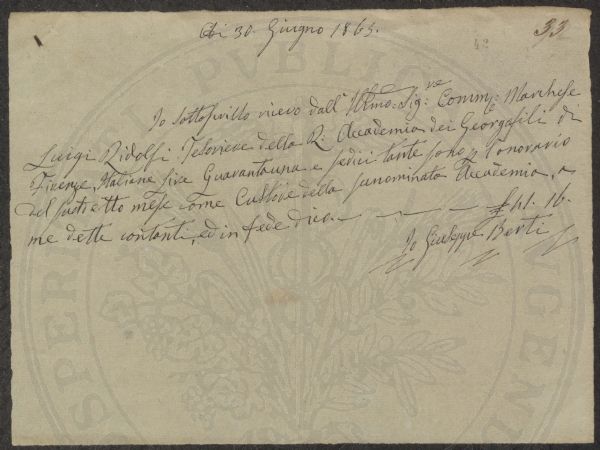 Adi 30. Giugno 1865.
33
42
Io sottoscritto ricevo dall' Illmo: Sig:re Comm: Marchese
Luigi Ridolfi Tesoriere della R. Accademia dei Georgofili di
Firenze, Italiane Lire Quarantuna e sedici tante sono p l'onorario
del sud.etto mese come Custode della sunominata Accademia, a
me dette contanti, ed in fede dico. £ 41. 16.
Io Giuseppe Berti
PVBLICO
PROSPERI